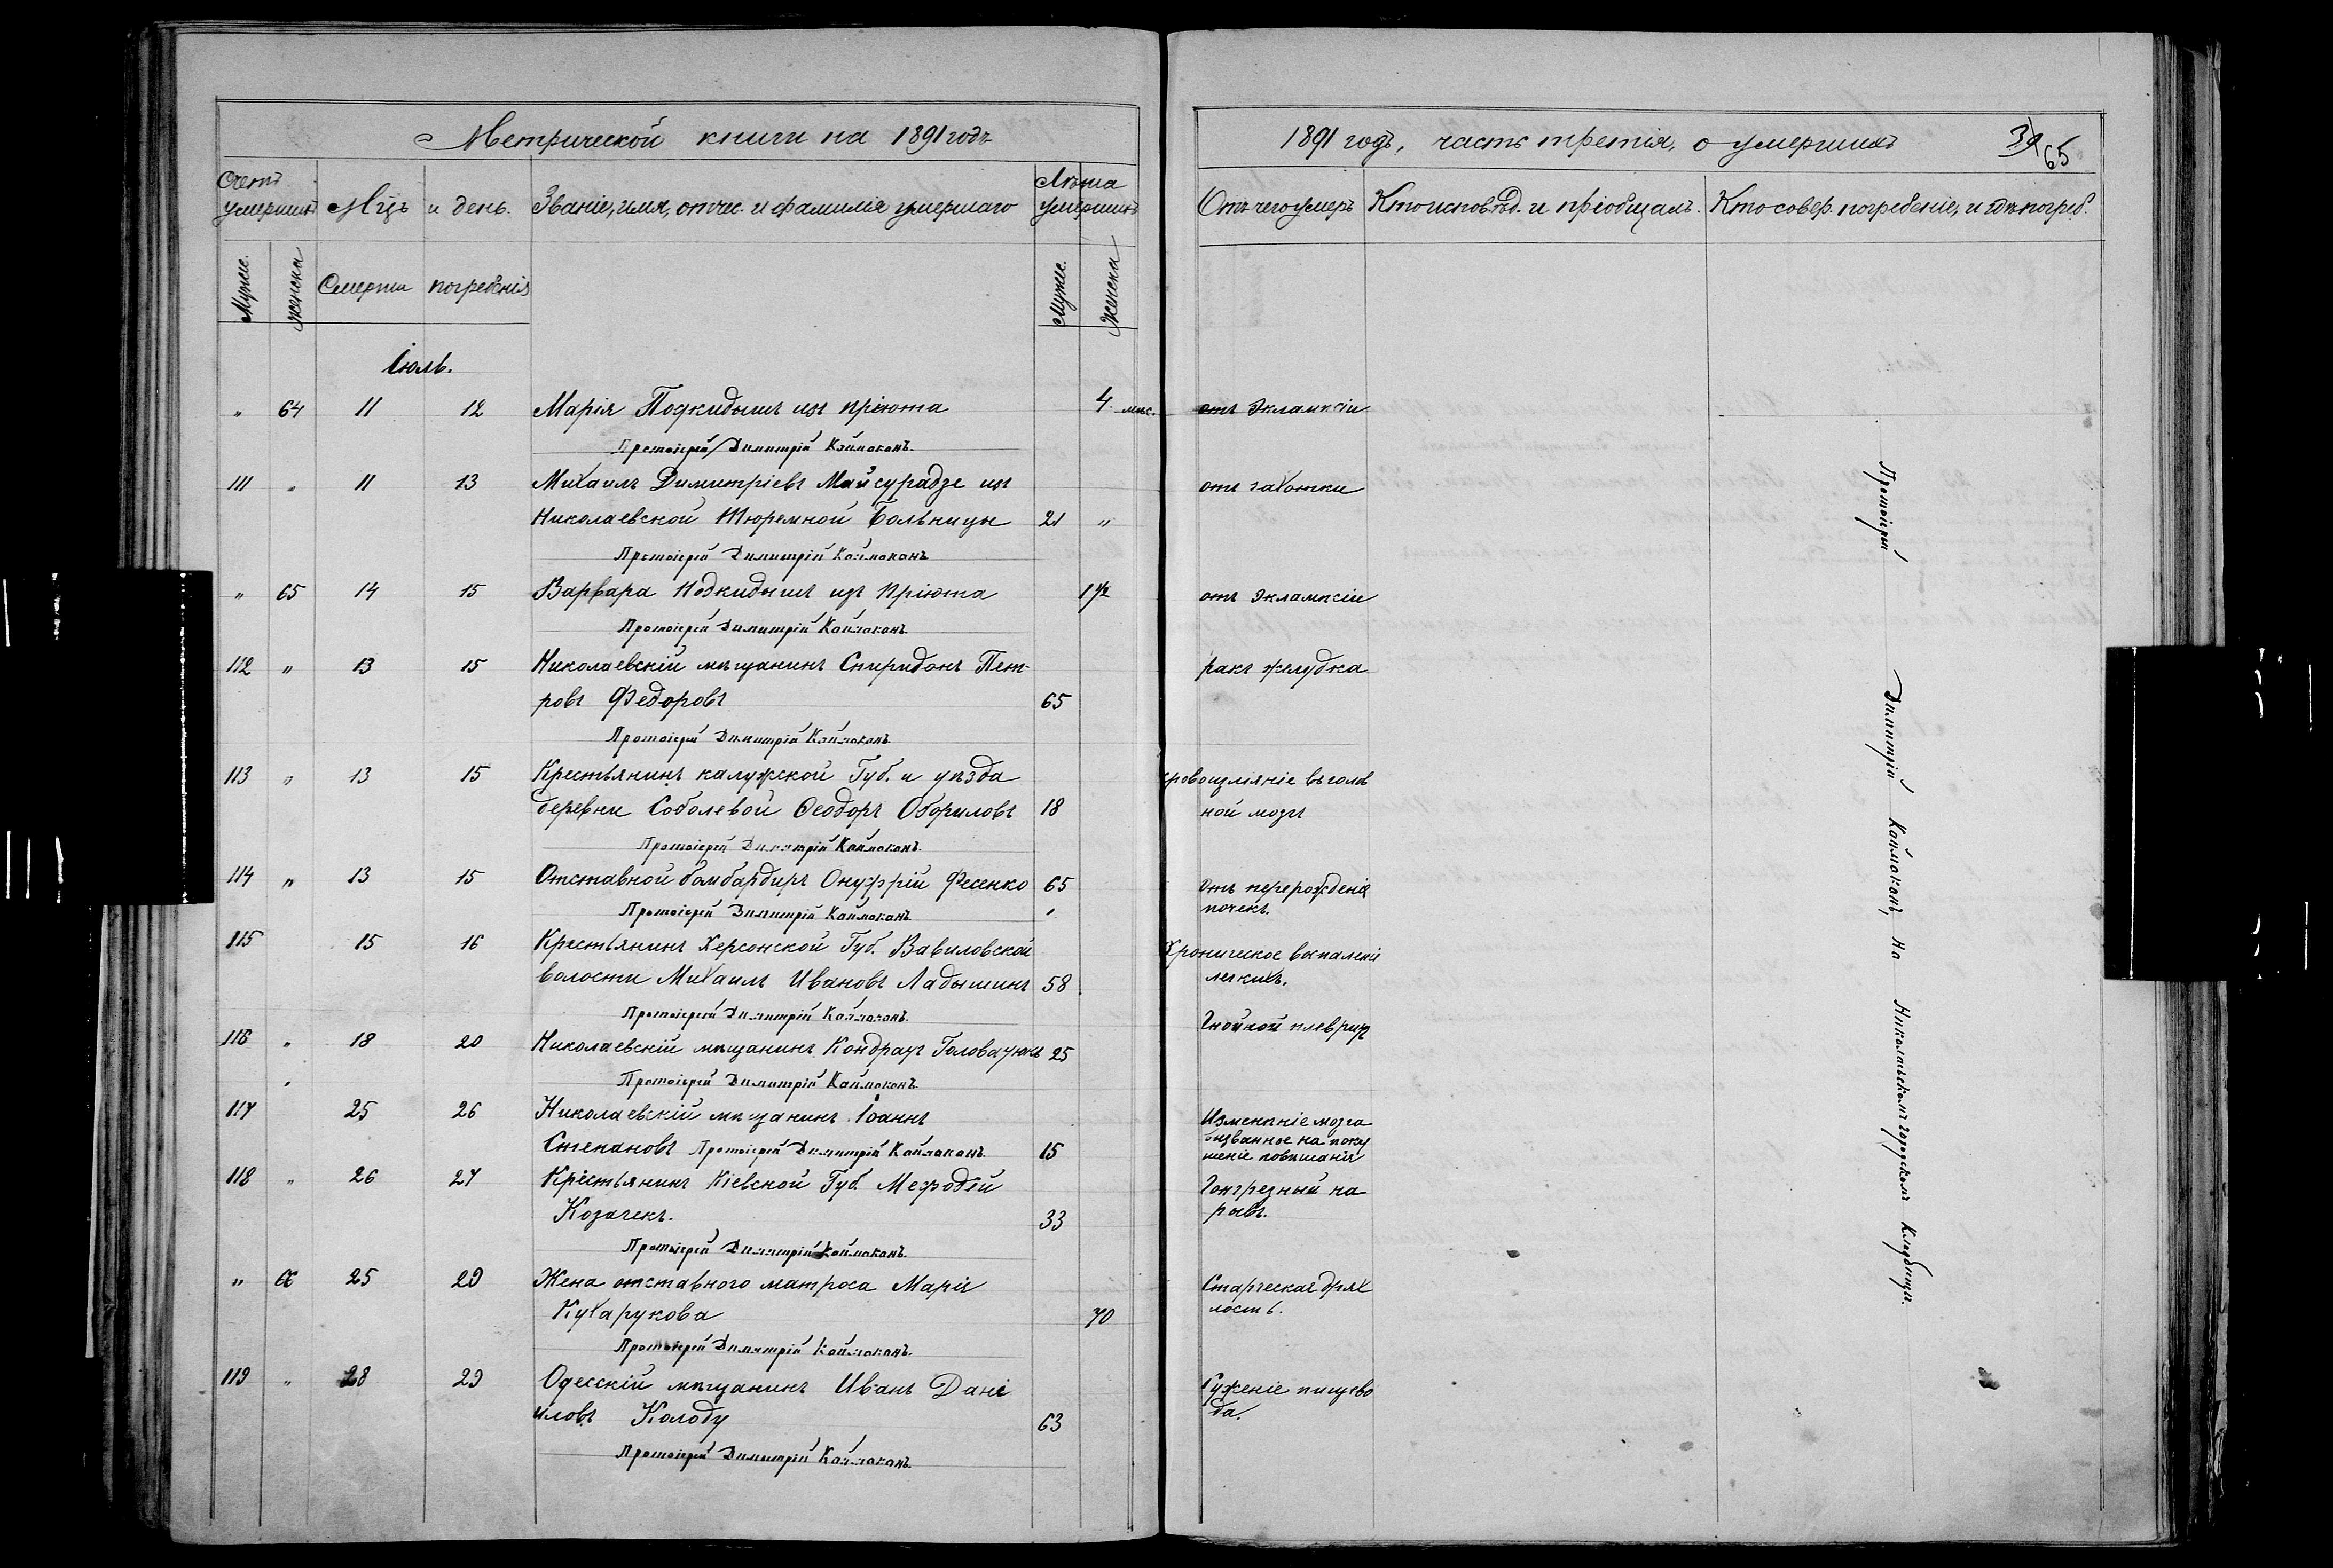 Метрической книги на 1891 годъ
Счетъ умершихъ
Мцъ и день.
Званіе, имя, отчес. и фамилія умершаго
Лѣта умершихъ
Мужес.
Женска
Смерти
погребѣнія
Мужес.
Женска
Іюль.
" 64 11 12 Марія Подкидышъ изъ пріюта 4 мѣс.
Протоіерей Димитрій Каймаканъ.
111 " 11 13 Михаилъ Димитріевъ Майсурадзе изъ
Николаевской Тюремной Больницы 21 "
Протоіерей Димитрій Каймаканъ
" 65 14 15 Варвара Подкидышъ изъ Пріюта 1 1/2
Протоіерей Димитрій Каймаканъ.
112 " 13 15 Николаевскій мѣщанинъ Спиридонъ Пет-
ровъ Федоровъ 65
Протоіерей Димитрій Каймаканъ.
113 " 13 15 Крестьянинъ калужской Губ. и уѣзда
деревни Соболевой Ѳеодоръ Обориловъ 18
Протоіерей Димитрій Каймаканъ.
114 " 13 15 Отставной бомбардиръ Онуфрій Фесенко 65
Протоіерей Димитрій Каймаканъ.
115 15 16 Крестьянинъ Херсонской Губ. Вавиловской
волости Михаилъ Ивановъ Ладышинъ 58
Протоіерей Димитрій Каймаканъ.
116 " 18 20 Николаевскій мѣщанинъ Кондратъ 25
Протоіерей Димитрій Каймаканъ.
117 25 26 Николаевскій мѣщанинъ Іоаннъ
Степановъ Протоіерей Димитрій Каймаканъ. 15
118 " 26 27 Крестьянинъ Кіевской Губ. Мефодій
Козачекъ. 33
Протоіерей Димитрій Каймаканъ.
" 66 25 29 Жена отставного матроса Марія
Кухарукова 70
Протоіерей Димитрій Каймаканъ.
119 " 28 29 Одесскій мѣщанинъ Иванъ Дані
иловъ Колоду 63
Протоіерей Димитрій Каймаканъ.
1891 годъ, часть третія, о умершихъ
65
Отъ чего умеръ
Кто исповѣд. и пріобщалъ.
Кто совер. погребеніе, и гдѣ погреб.
отъ Эклампсіи
отъ чахотки
отъ Эклампсіи
ракъ желудка
кровоизліяніе въ голов
ной мозгъ
отъ перерожденія
почекъ.
Хроническое воспаленіе
легкихъ.
Гнойной плевритъ
Измененіе мозга
вызванное на поку
шеніе повѣшанія
Гонгрезный на
рывъ.
Старческая дрях
лость.
Суженіе пищево
да.
Протоіерей Димитрій Каймаканъ, На Николаевскомъ городскомъ Кладбищѣ.